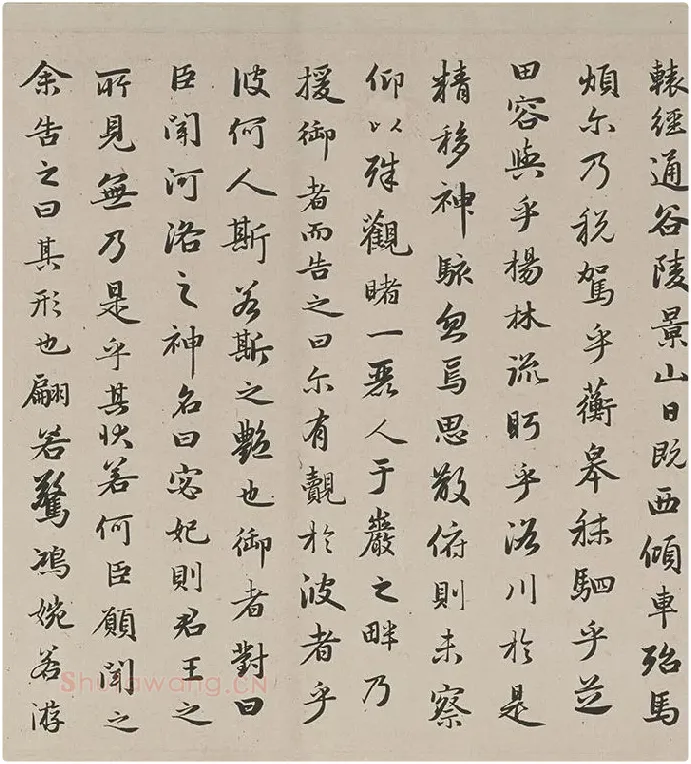 轅經通谷陵景山日既西傾車殆馬
煩尔乃税駕乎蘅皋秣駟乎芝
田容與乎楊林流眄乎洛川於是
精移神駭忽焉思散俯則未察
仰以殊觀睹一麗人于巖之畔乃
援御者而告之曰尔有覿於彼者乎
彼何人斯若斯之艷也御者對曰
臣聞河洛之神名曰宓妃則君王之
所見無乃是乎其状若何臣願聞之
余告之曰其形也翩若驚鴻婉若游
Shufawang.CN